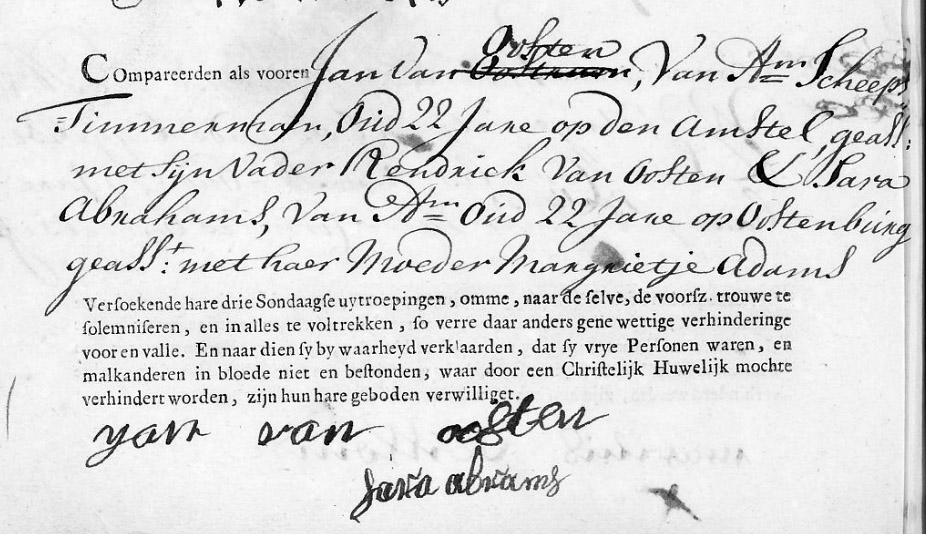 Oosten
Compareerden als vooren Jan van Oostrum, van Amm Scheeps
Timmerman, Oud 22 Jare op den Amstel, geass:
met sijn Vader Hendrick van Oosten & Sara
Abrahams, van Amm Oud 22 Jare op Oostenburg
geasst: met haer Moeder Margrietje Adams
Verſoekende hare drie Sondaagſe uytroepingen, omme, naar de ſelve, de voorſz. trouwe te
ſolemniſeren, en in alles te voltrekken, ſo verre daar anders gene wettige verhinderinge
voor en valle. En naar dien ſy by waarheyd verklaarden, dat ſy vrye Perſonen waren, en
malkanderen in bloede niet en beſtonden, waar door een Chriſtelijk Huwelijk mochte
verhindert worden, zijn hun hare geboden verwilliget.
yan van oosten
sara abrams